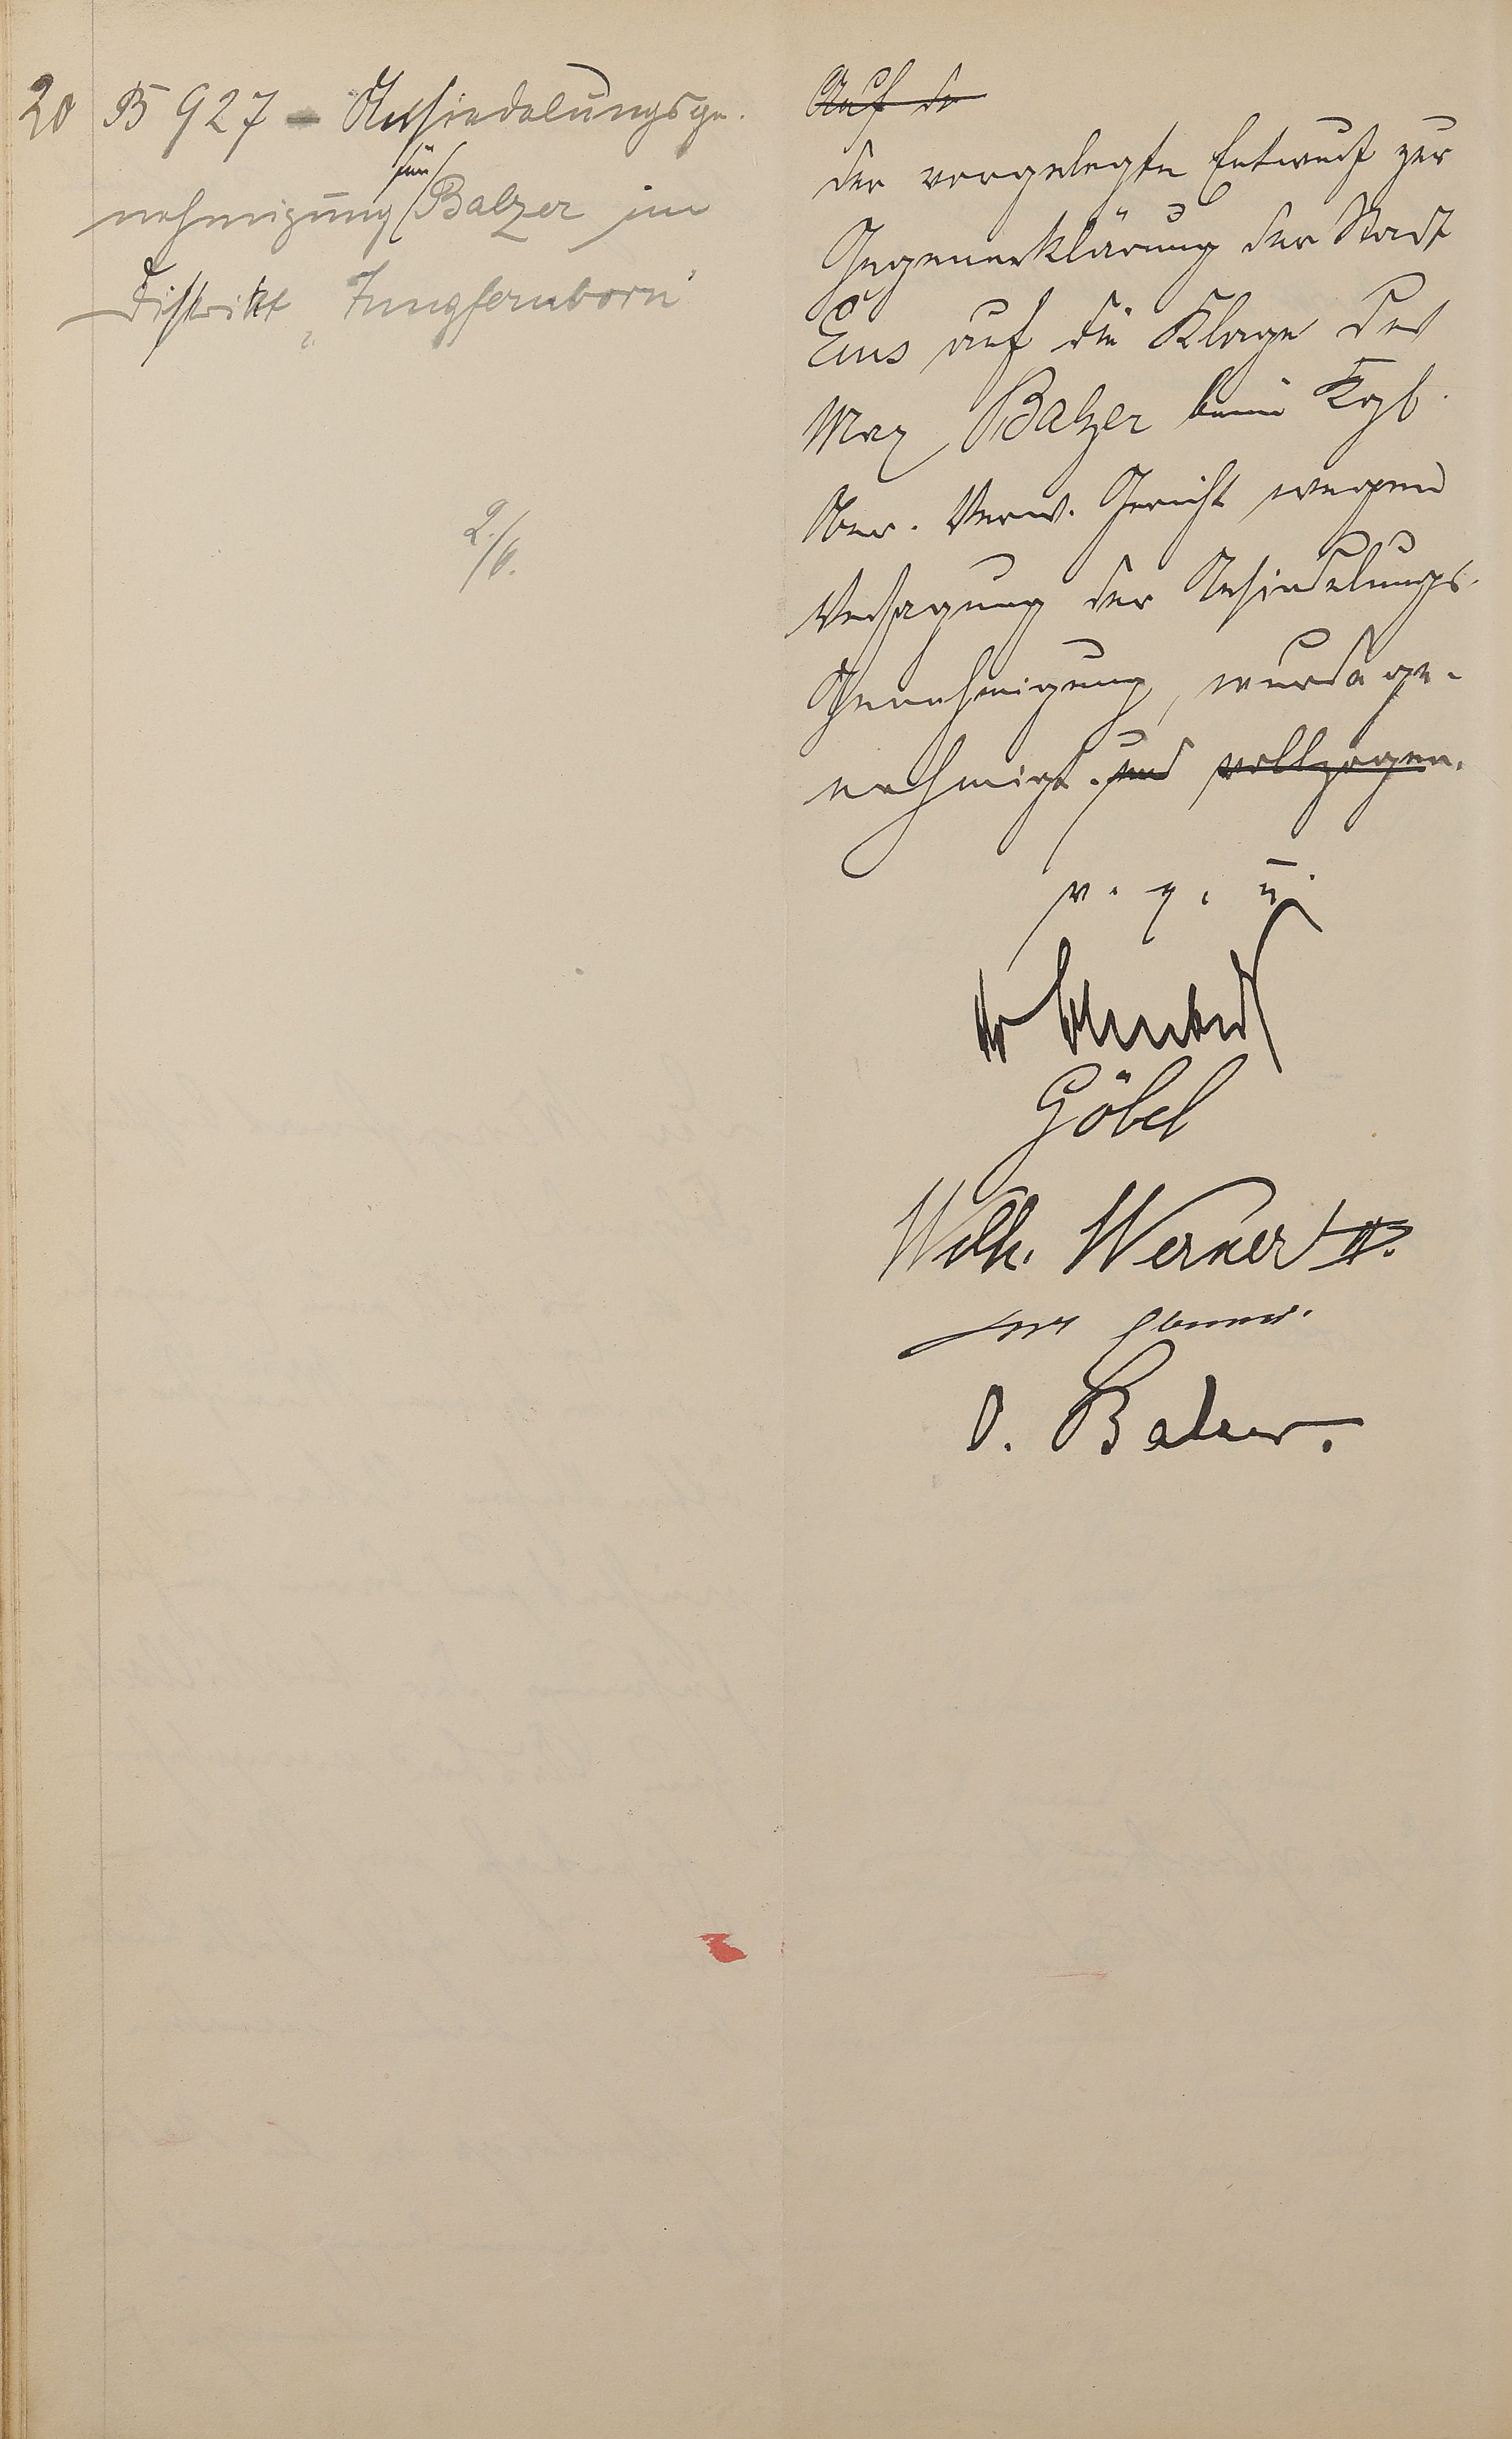 20 B 927 - Ansiedelungsge-
für
nehmigung Balzer im
Distrikt „Jungfernborn"
2./6.
Auf de
der vorgelegte Entwurf zur
Gegenerklärung der Stadt
Ems auf die Klage des
Max Balzer beim Kgl.
Ober. Verw. Gericht wegen
Versagung der Ansiedelungs-
Genehmigung, wurde ge-
nehmigt. und vollzogen.
v. g. u.
Dr Schubert
Göbel
Wilh. Werner II.
O. Balzer.